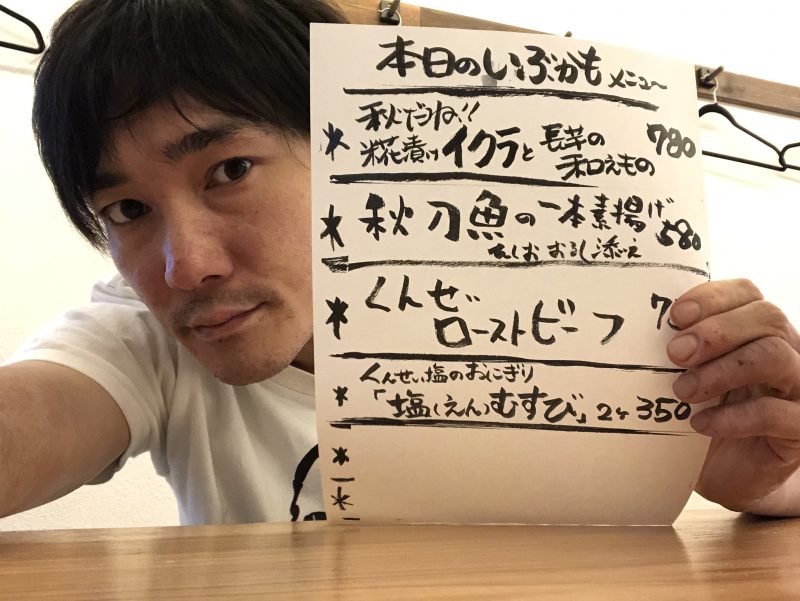 本日のいぶかもメニュー
* 秋だね!!
糀漬けイクラと長芋の和えもの 780
* 秋刀魚の一本素揚げ 580
おろし添え
* くんせい
ローストビーフ 7
* くんせい塩のおにぎり
「塩(えん)むすび」2ヶ 350
*
*